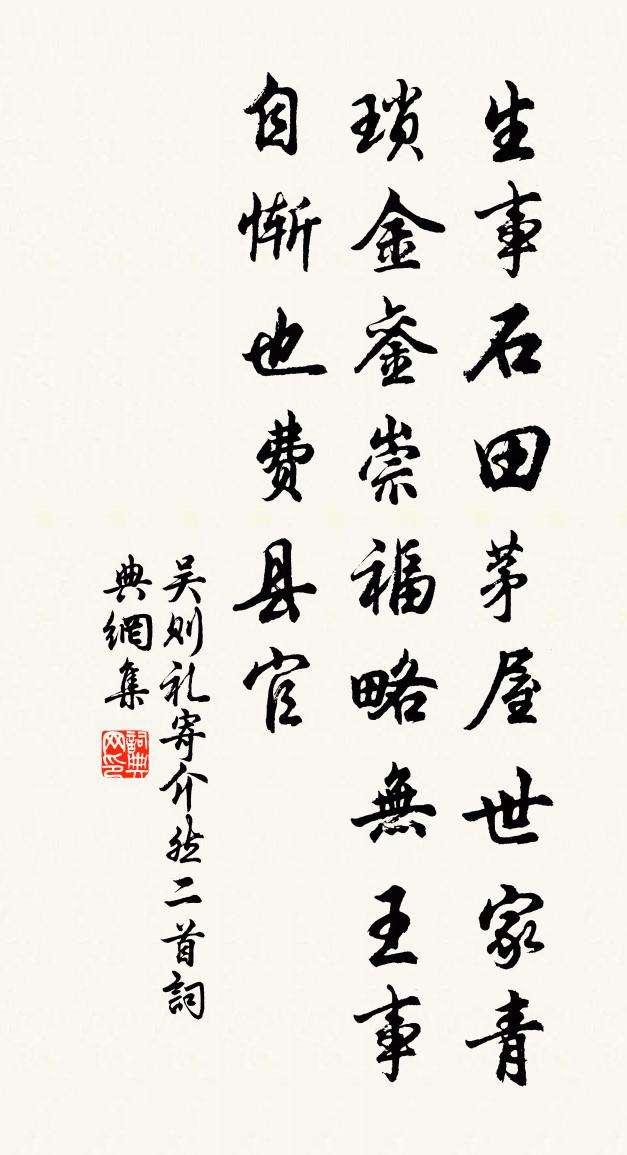 生事石田茅屋世家青
瑣金銮崇福略無王事
自惭也费县官
吴则礼寄介然二首詞
典網集
詞典
网印